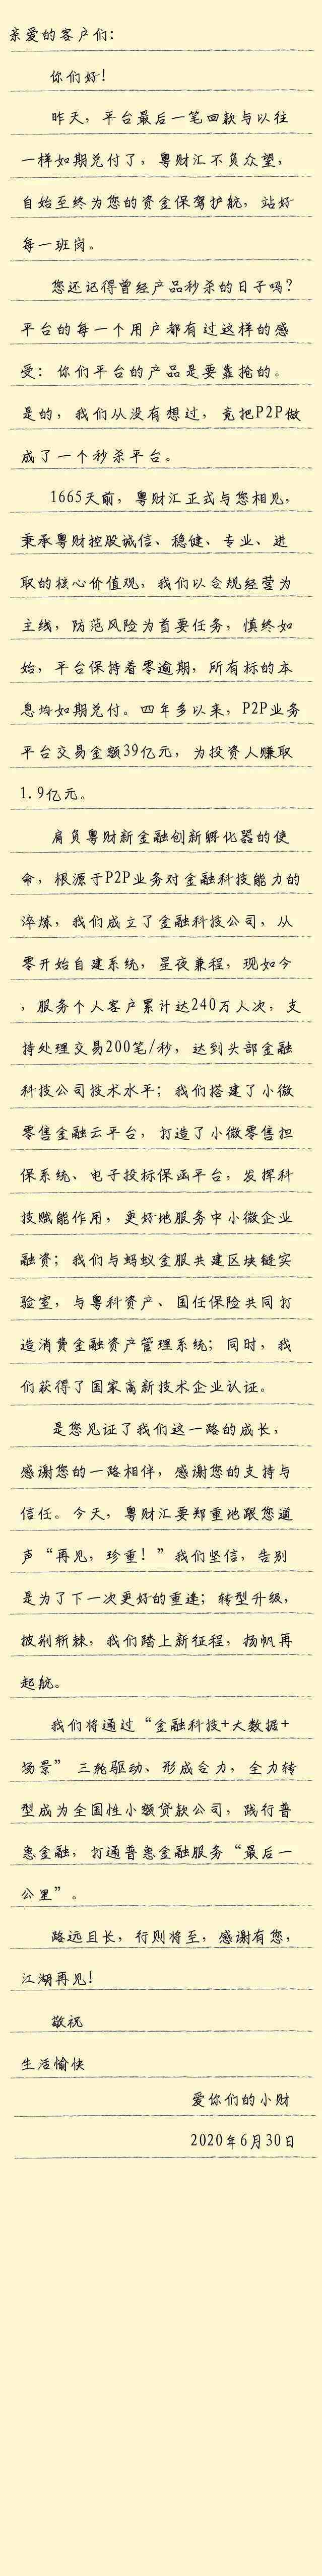 亲爱的客户们：
你们好！
昨天，平台最后一笔回款与以往
一样如期兑付了，粤财汇不负众望，
自始至终为您的资金保驾护航，站好
每一班岗。
您还记得曾经产品秒杀的日子吗？
平台的每一个用户都有过这样的感
受：你们平台的产品是要靠抢的。
是的，我们从没有想过，竟把P2P做
成了一个秒杀平台。
1665天前，粤财汇正式与您相见，
秉承粤财控股诚信、稳健、专业、进
取的核心价值观，我们以合规经营为
主线，防范风险为首要任务，慎终如
始，平台保持着零逾期，所有标的本
息均如期兑付。四年多以来，P2P业务
平台交易金额39亿元，为投资人赚取
1.9亿元。
肩负粤财新金融创新孵化器的使
命，根源于P2P业务对金融科技能力的
淬炼，我们成立了金融科技公司，从
零开始自建系统，星夜兼程，现如今
，服务个人客户累计达240万人次，支
持处理交易200笔/秒，达到头部金融
科技公司技术水平；我们搭建了小微
零售金融云平台，打造了小微零售担
保系统、电子投标保函平台，发挥科
技赋能作用，更好地服务中小微企业
融资；我们与蚂蚁金服共建区块链实
验室，与粤科资产、国任保险共同打
造消费金融资产管理系统；同时，我
们获得了国家高新技术企业认证。
是您见证了我们这一路的成长，
感谢您的一路相伴，感谢您的支持与
信任。今天，粤财汇要郑重地跟您道
声“再见，珍重！”我们坚信，告别
是为了下一次更好的重逢；转型升级，
披荆斩棘，我们踏上新征程，扬帆再
起航。
我们将通过“金融科技+大数据+
场景”三轮驱动、形成合力，全力转
型成为全国性小额贷款公司，践行普
惠金融，打通普惠金融服务“最后一
公里”。
路远且长，行则将至，感谢有您，
江湖再见！
敬祝
生活愉快
爱你们的小财
2020年6月30日